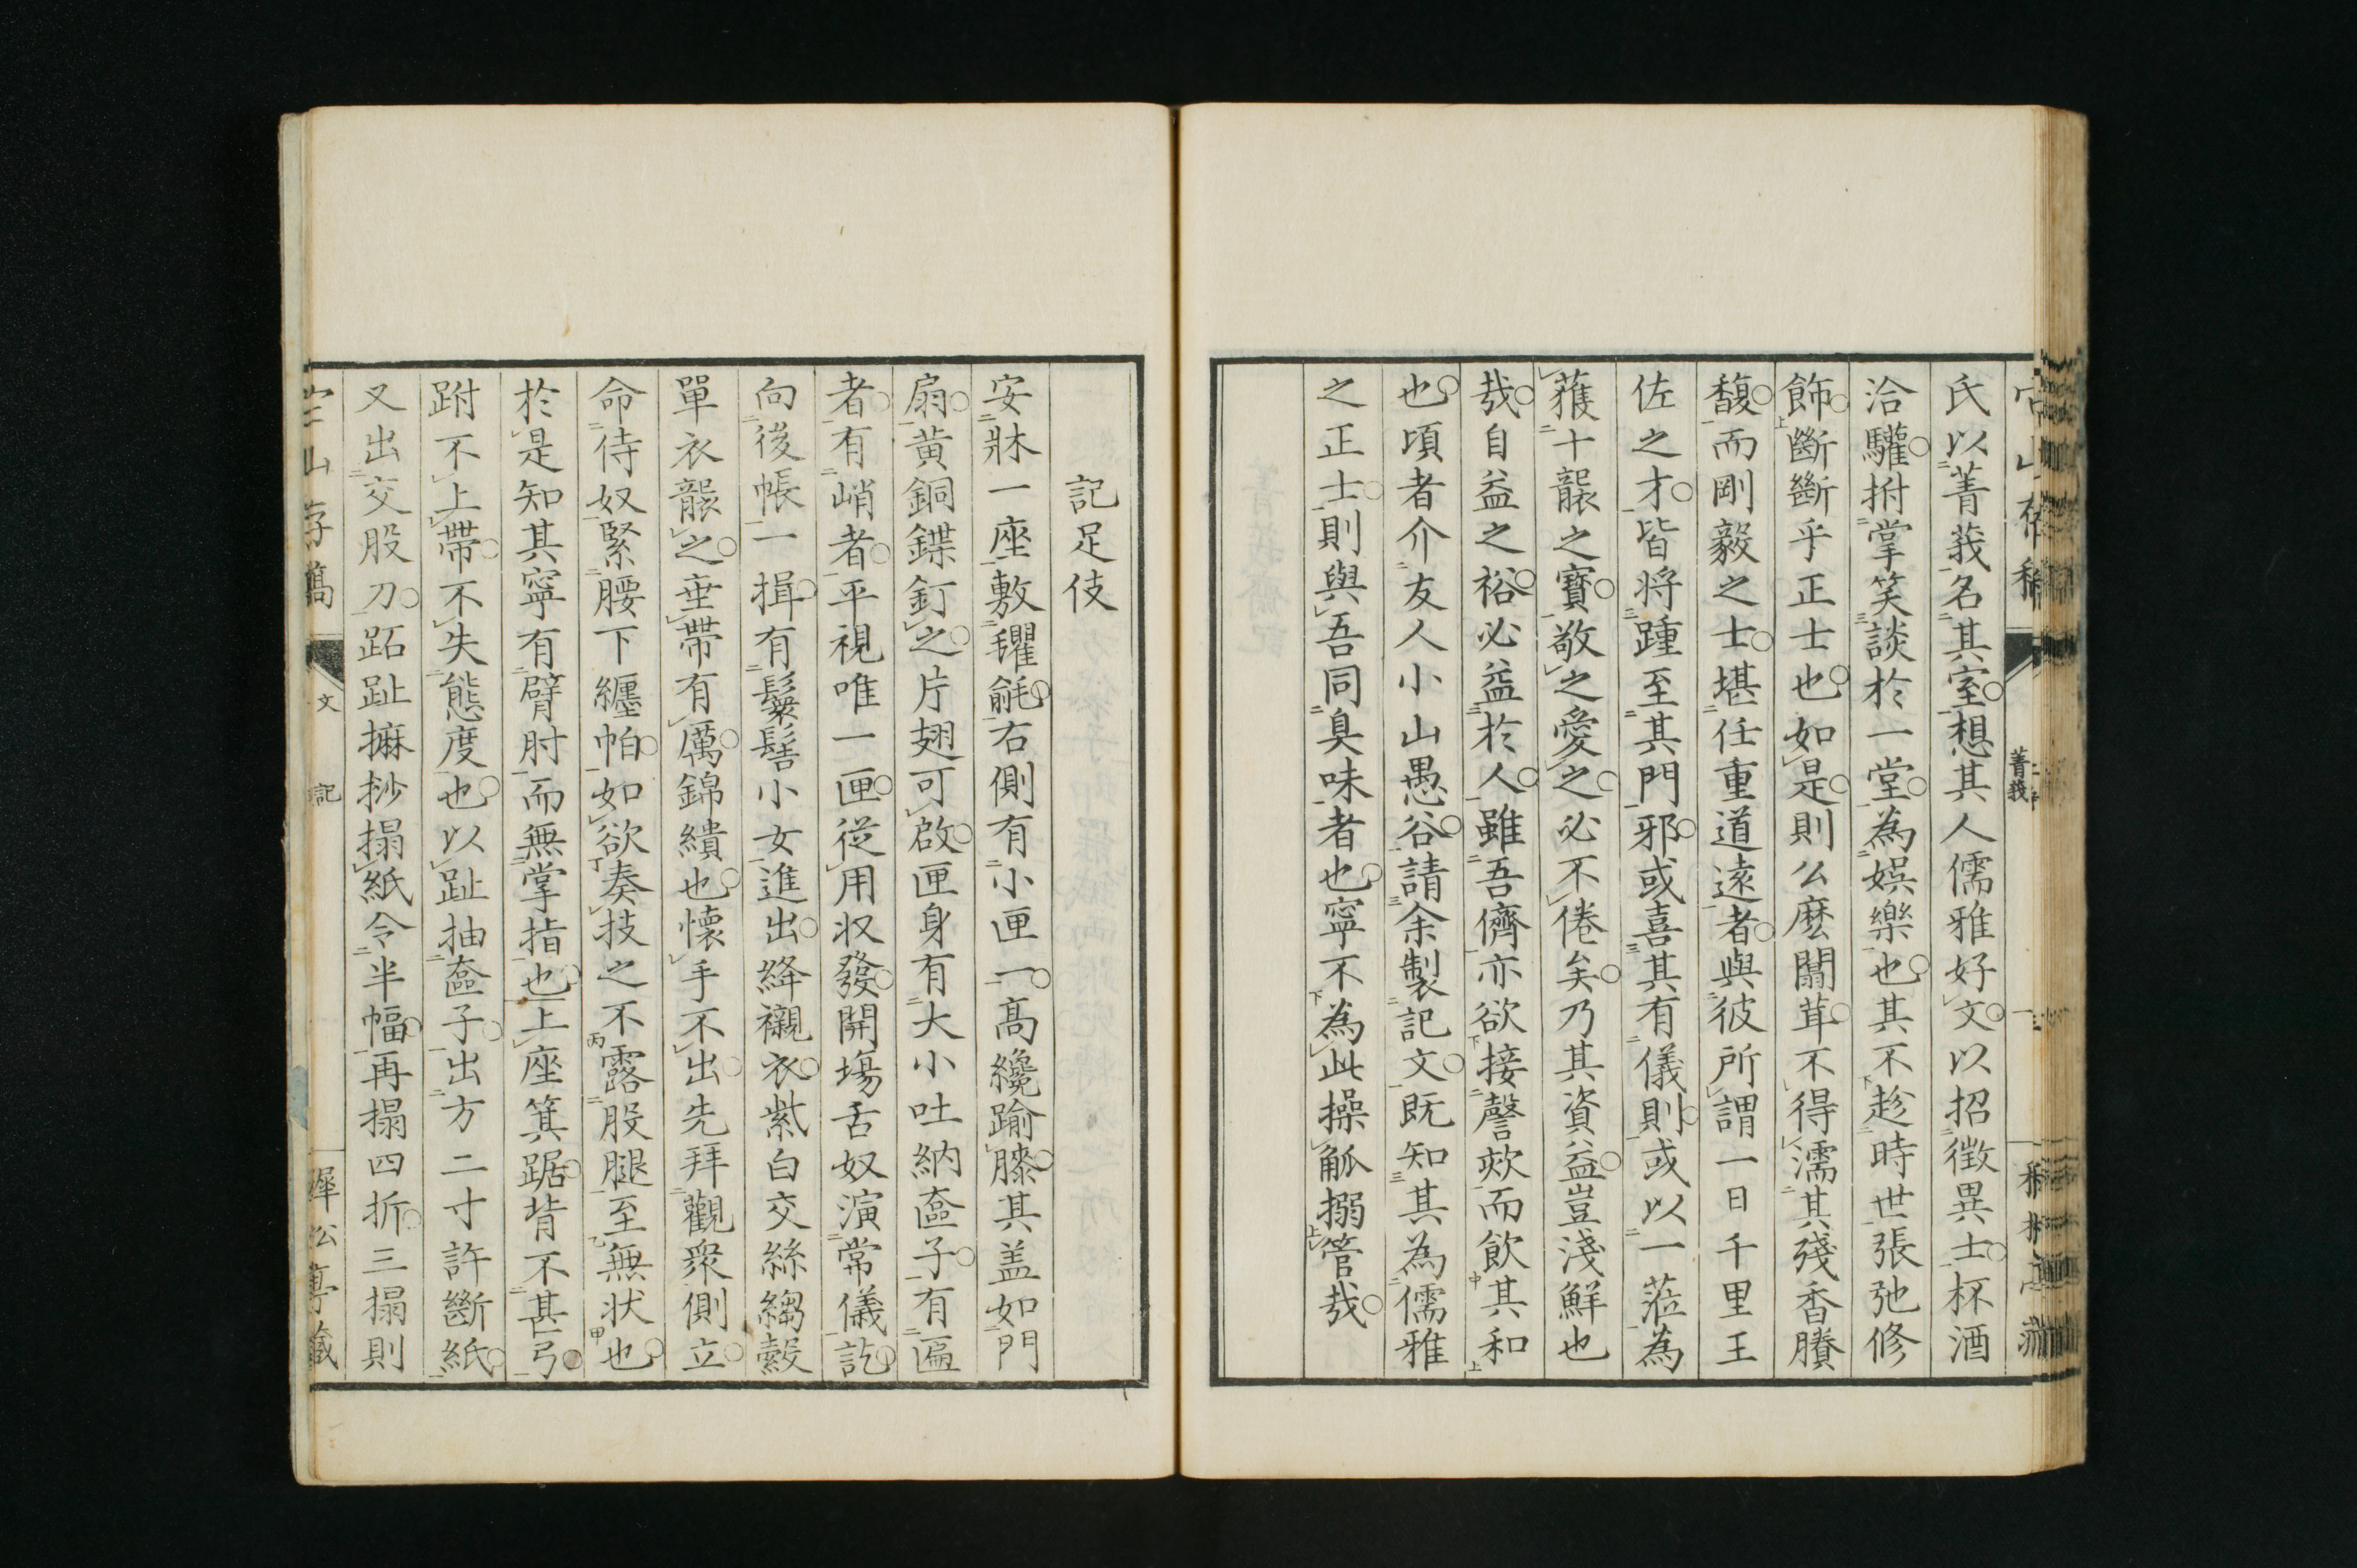 氏以菁莪名其室想其人儒雅好文以招徴異士杯酒
洽驩拊掌笑談於一堂為娯樂也其不趁時世張弛修
飾斷斷乎正士也如是則么麼闒茸不得濡其殘香賸
馥而剛毅之士堪任重道遠者與彼所謂一日千里王
佐之才皆将踵至其門邪或喜其有儀則或以一蒞為
蒦十襲之寶敬之愛之必不倦矣乃其資益豈淺鮮也
哉自益之裕必益於人雖吾儕亦欲接謦欬而飲其和
也頃者介友人小山愚谷請余製記文既知其為儒雅
之正士則與吾同臭味者也寧不為此操觚搦管哉
菁莪
記足伎
安牀一座敷氍毹右側有小匣一高纔踰膝其盖如門
扇黄銅鍱釘之片翅可啟匣身有大小吐納奩子有匾
者有峭者平視唯一匣従用収發開場舌奴演常儀訖
向後帳一揖有鬟髻小女進出絳襯衣紫白交絲縐縠
單衣襲之垂帶有厲錦繢也懐手不出先拜觀衆側立
命侍奴緊腰下纒帕如欲奏技之不露股腿至無状也
於是知其寧有臂肘而無掌指也上座箕踞背不甚弓
跗不上帶不失態度也以趾抽奩子出方二寸許斷紙
又出交股刀跖趾擵挱搨紙令半幅再搨四折三搨則
山存藁
文
記
犀公亭藏